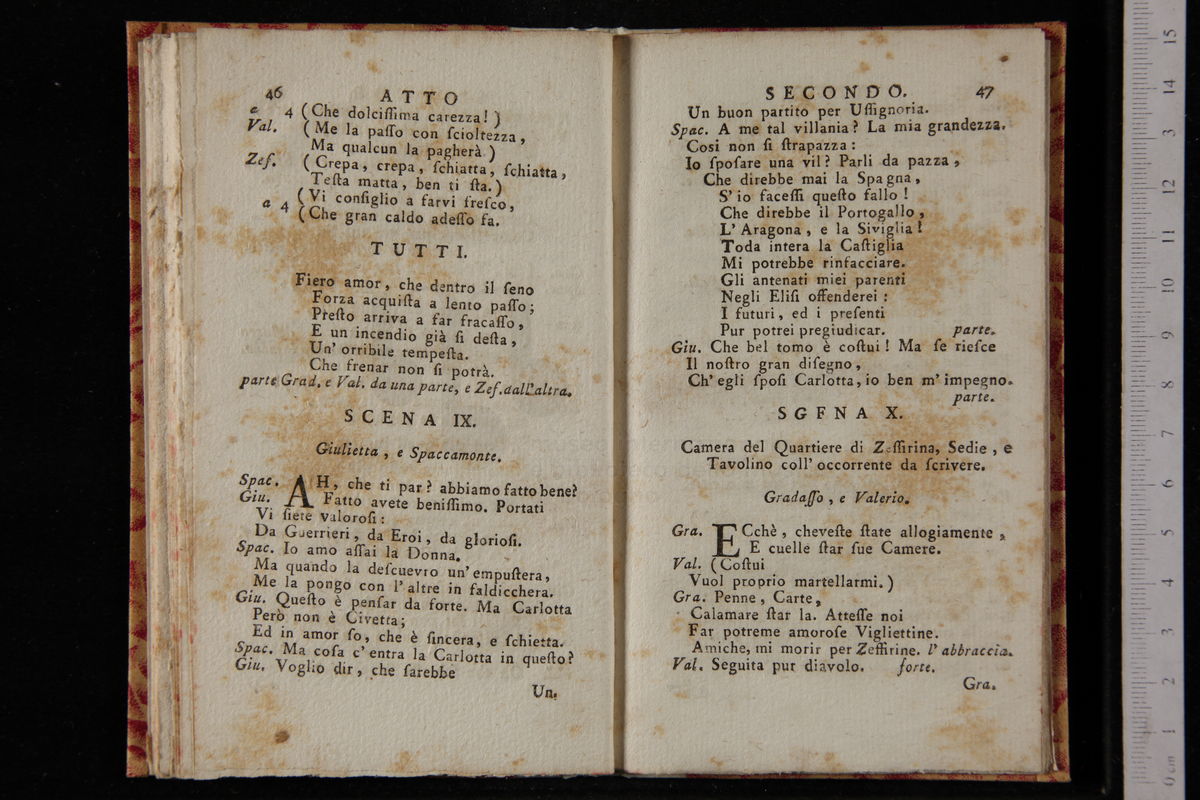 46
ATTO
a 4 (Che dolciſſima carezza!)
Val. (Me la paſſo con ſcioltezza,
Ma qualcun la pagherà.)
Zef. (Crepa, crepa, ſchiatta, ſchiatta,
Teſta matta, ben ti ſta.)
a 4 (Vi conſiglio a farvi freſco,
(Che gran caldo adeſſo fa.
TUTTI.
Fiero amor, che dentro il ſeno
Forza acquiſta a lento paſſo;
Preſto arriva a far fracaſſo,
E un incendio già ſi deſta,
Un' orribile tempeſta.
Che frenar non ſi potrà.
parte Grad. e Val. da una parte, e Zef. dall'altra.
SCENA IX.
Giulietta, e Spaccamonte.
Spac. AH, che ti par? abbiamo fatto bene?
Giu. Fatto avete beniſſimo. Portati
Vi ſiete valoroſi:
Da Guerrieri, da Eroi, da glorioſi.
Spac. Io amo aſſai la Donna.
Ma quando la deſcuevro un'empuſtera,
Me la pongo con l'altre in faldicchera.
Giu. Queſto è penſar da forte. Ma Carlotta
Però non è Civetta;
Ed in amor ſo, che è ſincera, e ſchietta.
Spac. Ma coſa c'entra la Carlotta in queſto?
Giu. Voglio dir, che ſarebbe
Un.
SECONDO.
47
Un buon partito per Uſſignoria.
Spac. A me tal villania? La mia grandezza.
Coſi non ſi ſtrapazza:
Io ſpoſare una vil? Parli da pazza,
Che direbbe mai la Spagna,
S'io faceſſi queſto fallo!
Che direbbe il Portogallo,
L'Aragona, e la Siviglia!
Toda intera la Caſtiglia
Mi potrebbe rinfacciare.
Gli antenati miei parenti
Negli Eliſi offenderei:
I futuri, ed i preſenti
Pur potrei pregiudicar. parte.
Giu. Che bel tomo è coſtui! Ma ſe rieſce
Il noſtro gran diſegno,
Ch'egli ſpoſi Carlotta, io ben m'impegno.
parte.
SGFNA X.
Camera del Quartiere di Zeffirina, Sedie, e
Tavolino coll'occorrente da ſcrivere.
Gradaſſo, e Valerio.
Gra. ECchè, cheveſte ſtate allogiamente,
E cuelle ſtar ſue Camere.
Val. (Coſtui
Vuol proprio martellarmi.)
Gra. Penne, Carte,
Calamare ſtar la. Atteſſe noi
Far potreme amoroſe Vigliettine.
Amiche, mi morir per Zeffirine. l'abbraccia.
Val. Seguita pur diavolo. forte.
Gra.
15
14
13
12
11
10
9
8
7
6
5
4
3
2
1
0 cm